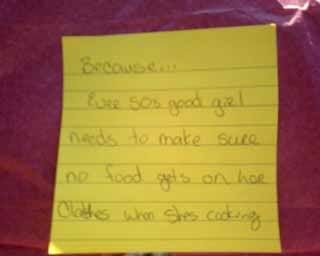 Because...
Evee 50s good girl
needs to make sure
no food gets on her
Clothes when shes cooking